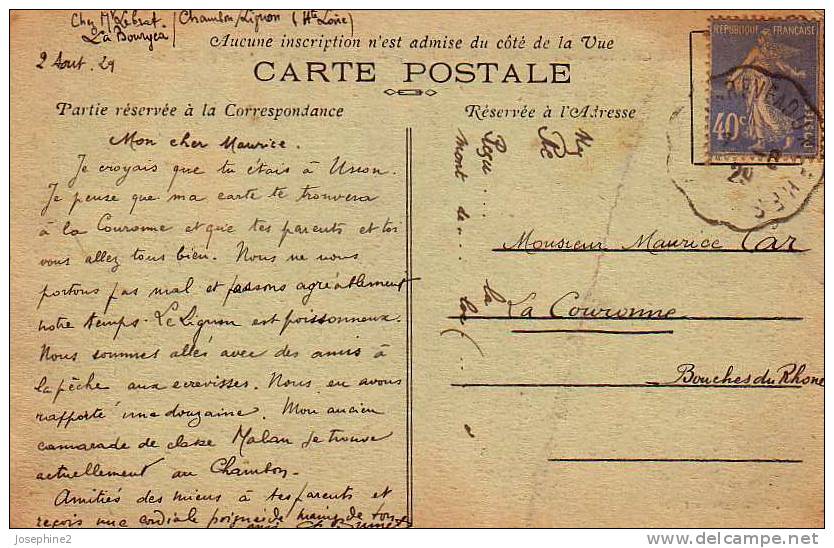 Chez Mr Lebrat / Chambon/Lignon (Hte Loire)
La Bourgea
2 Aout. 29
Aucune inscription n'est admise du côté de la Vue
CARTE POSTALE
Partie réservée à la Correspondance
Réservée à l'Adresse
RÉPUBLIQUE FRANÇAISE
40c
POSTES
29
Mon cher Maurice.
Je croyais que tu étais à
Je pense que ma carte te trouvera
à la Couronne et que tes parents et toi
vous allez tous bien. Nous ne nous
portons pas mal et passons agréablement
notre temps. Le Lignon est poissonneux.
Nous sommes allés avec des amis à
la pêche aux ecrevisses. Nous en avons
rapporté une douzaine. Mon ancien
camarade de classe Malan se trouve
actuellement au Chambon.
Amitiés des miens à tes parents et
reçois une cordiale poignée de mains de ton
Monsieur Maurice Car
La Couronne
Bouches du Rhone
Josephine2
delcampe.net